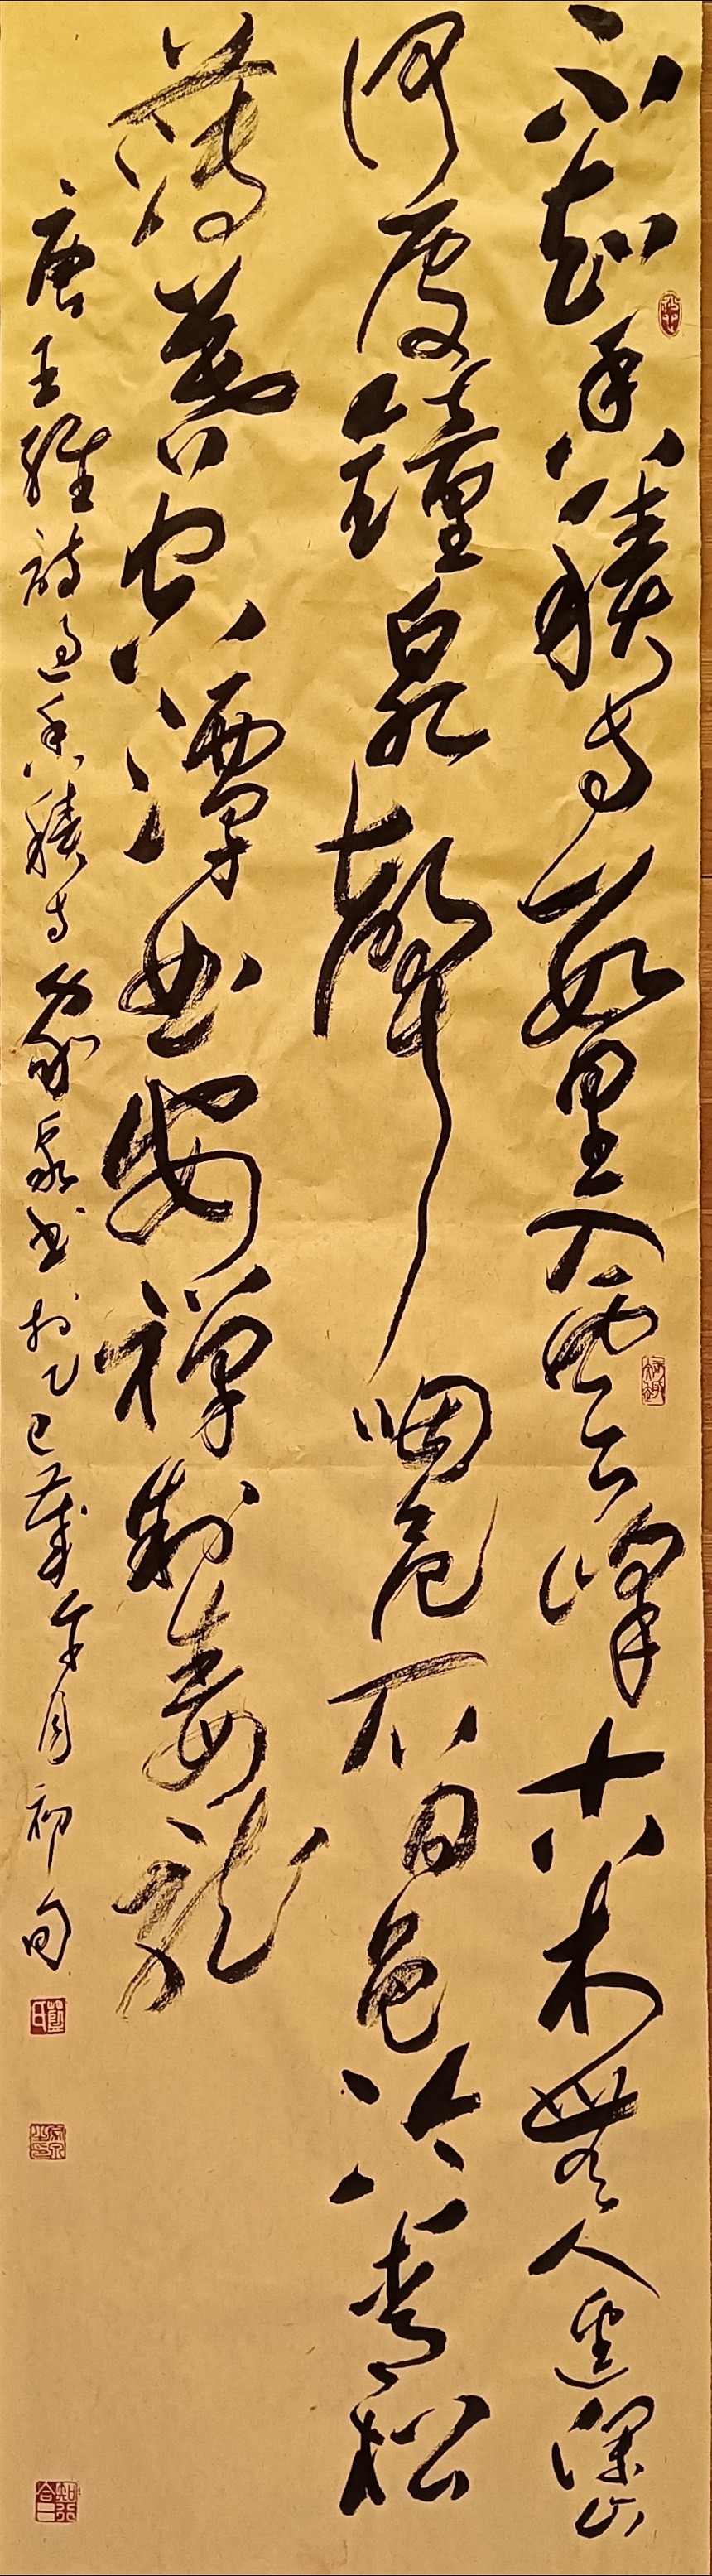 不知香積寺數里入雲峰古木無人逕深山
何處鐘泉聲咽危石日色冷青松
薄暮空潭曲安禪制毒龍
唐王維詩過香積寺家泉书於乙巳歲午月初旬
藍氏
知行合一